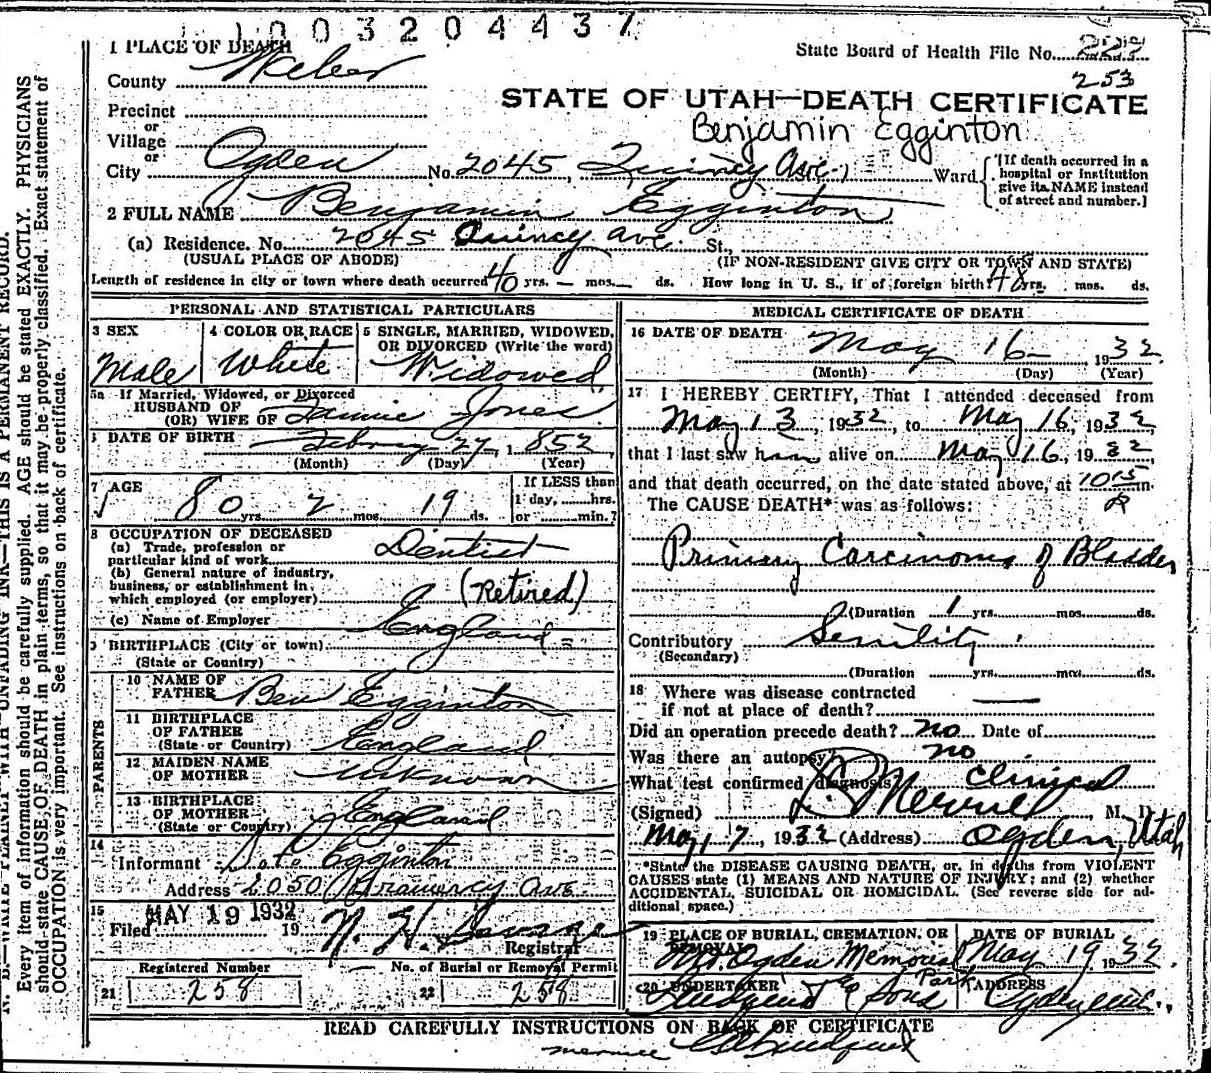 1003204437
1 PLACE OF DEATH
State Board of Health File No. 229
253
County Weber
STATE OF UTAH—DEATH CERTIFICATE
Benjamin Egginton
Precinct
or
Village
or
City Ogden No. 2045, Quincy Ave., Ward
[If death occurred in a
hospital or institution
give its NAME instead
of street and number.]
2 FULL NAME Benjamin Egginton
(a) Residence. No. 2045 Quincy ave. St.,
(USUAL PLACE OF ABODE) (IF NON-RESIDENT GIVE CITY OR TOWN AND STATE)
Length of residence in city or town where death occurred 40 yrs. — mos. — ds. How long in U. S., if of foreign birth? 48 yrs. mos. ds.
PERSONAL AND STATISTICAL PARTICULARS
3 SEX
Male
4 COLOR OR RACE
White
5 SINGLE, MARRIED, WIDOWED,
OR DIVORCED (Write the word)
Widowed
5a If Married, Widowed, or Divorced
HUSBAND OF
(OR) WIFE OF Jones
DATE OF BIRTH 27, 1852
(Month) (Day) (Year)
7 AGE
80 yrs. 2 mos. 19 ds.
If LESS than
1 day, hrs.
or min.?
8 OCCUPATION OF DECEASED
(a) Trade, profession or
particular kind of work Dentist
(b) General nature of industry,
business, or establishment in
which employed (or employer) (Retired)
(c) Name of Employer
9 BIRTHPLACE (City or town) England
(State or Country)
PARENTS
10 NAME OF
FATHER Ben Egginton
11 BIRTHPLACE
OF FATHER
(State or Country) England
12 MAIDEN NAME
OF MOTHER Unknown
13 BIRTHPLACE
OF MOTHER
(State or Country) England
14
Informant Egginton
Address 2050 Gramercy Ave
15
Filed MAY 19 1932 19 N. H.
Registrar
Registered Number
21 258
No. of Burial or Removal Permit
22 258
MEDICAL CERTIFICATE OF DEATH
16 DATE OF DEATH
May 16 1932
(Month) (Day) (Year)
17 I HEREBY CERTIFY, That I attended deceased from
May 13, 1932, to May 16, 1932,
that I last saw him alive on May 16, 1932
and that death occurred, on the date stated above, at 1015 m.
The CAUSE DEATH* was as follows:
Primary Carcinoma of Bladder
(Duration 1 yrs. mos. ds.
Contributory Senility
(Secondary)
(Duration yrs. mos. ds.
18 Where was disease contracted
if not at place of death? —
Did an operation precede death? no Date of
Was there an autopsy no
What test confirmed diagnosis clinical
(Signed) M. D.
May 17, 1932 (Address) Ogden, Utah
*State the DISEASE CAUSING DEATH, or, in deaths from VIOLENT
CAUSES state (1) MEANS AND NATURE OF INJURY; and (2) whether
ACCIDENTAL, SUICIDAL OR HOMICIDAL. (See reverse side for ad-
ditional space.)
19 PLACE OF BURIAL, CREMATION, OR
REMOVAL
Mt. Ogden Memorial
Park
DATE OF BURIAL
May 19 1932.
20 UNDERTAKER
& Sons
ADDRESS
Ogden
READ CAREFULLY INSTRUCTIONS ON BACK OF CERTIFICATE
N. B.—WRITE PLAINLY WITH UNFADING INK—THIS IS A PERMANENT RECORD.
Every item of information should be carefully supplied. AGE should be stated EXACTLY. PHYSICIANS
should state CAUSE OF DEATH in plain terms, so that it may be properly classified. Exact statement of
OCCUPATION is very important. See instructions on back of certificate.